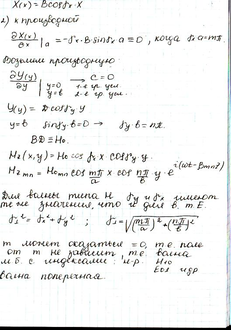 X(x) = B cos γx · X
2) к производной
∂X(x)/∂x |a = -γx · B · sin γx a ≡ 0, когда γx a = mπ.
Возьмем производную
∂Y(y)/∂y | y=0 y=b → C = 0
Y(y) = D cos γy Y
y = b sin γy · b = 0 → γy b = nπ.
BD ≡ H0.
Hz(x, y) = H0 cos γx x cos γy y.
Hz mn = H0mn cos mπ/a x cos nπ/b y · e
Для волны типа H γx и γy имеют
те же значения, что и для в. т. E.
γ² = γx² + γy² ; = √((mπ/a)² + (nπ/b)²)
m может оказаться = 0, т.е. поле
от m не зависит, т.е. волна
м.б. с индексами: н-р. H10
E01 и др
волна поперечная.